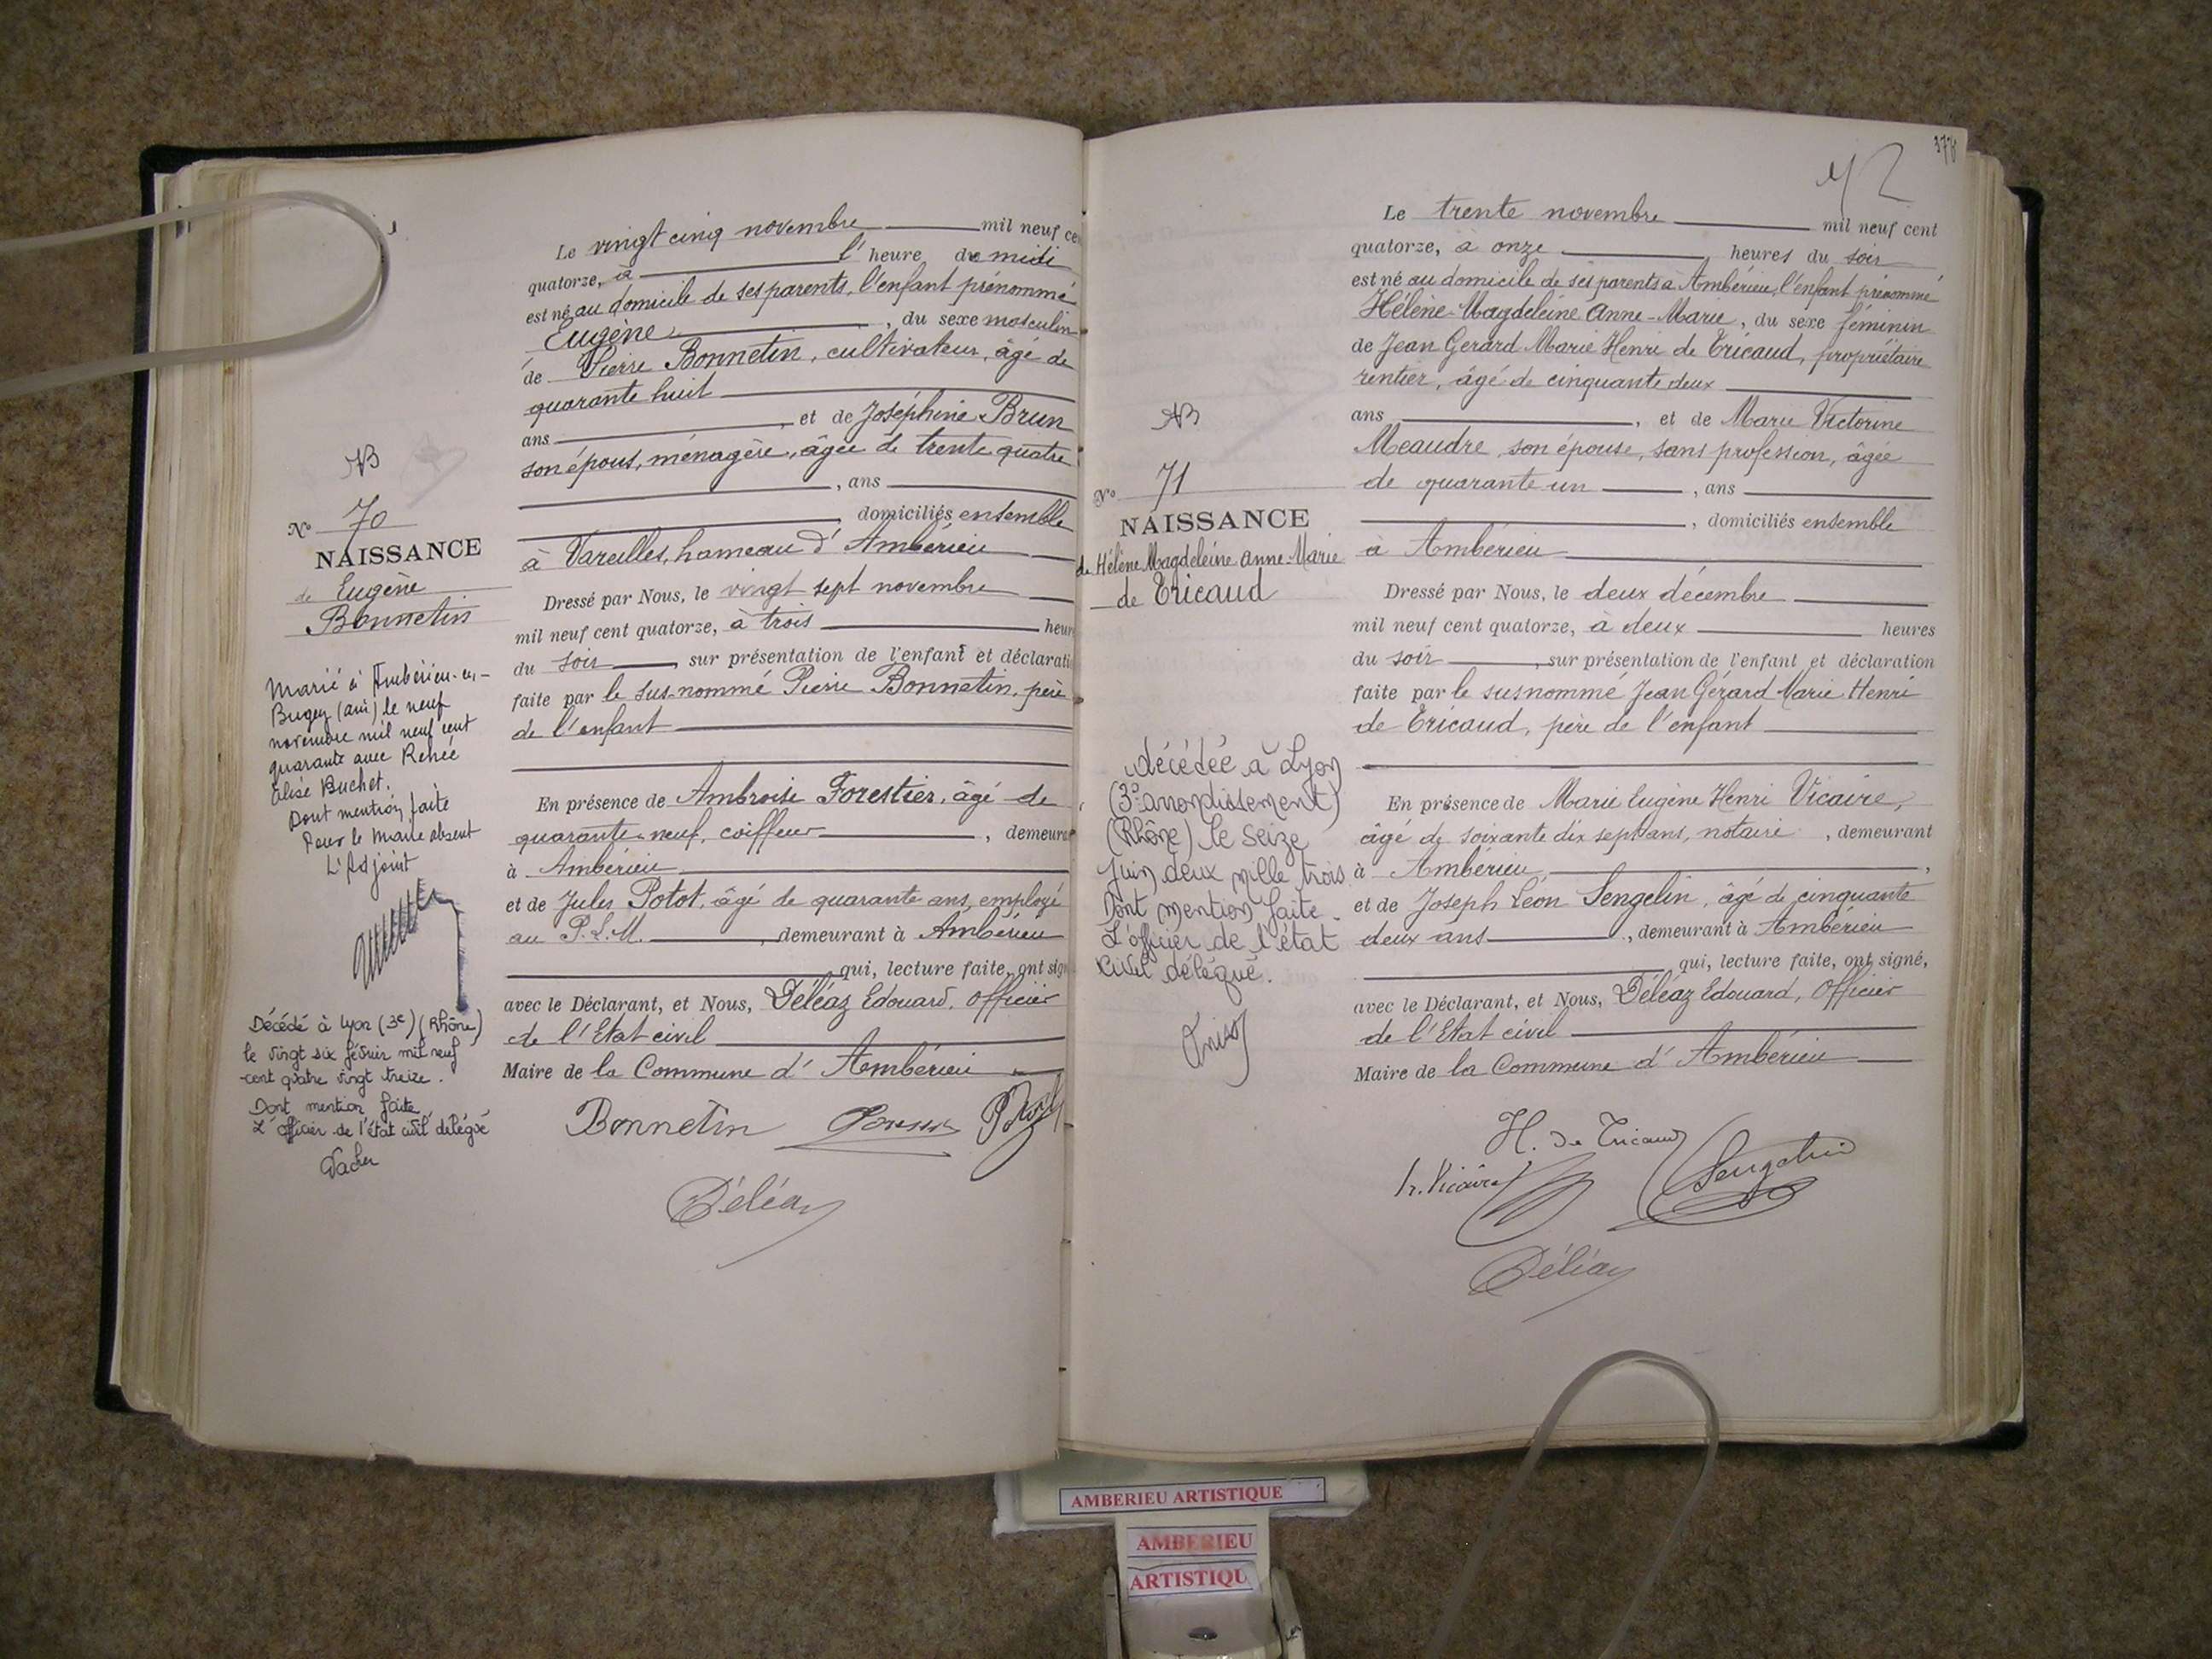 Le vingt cinq novembre mil neuf cen
quatorze, à l' heure de midi
est né au domicile de ses parents, l'enfant prénommé
Eugène, du sexe masculin
de Pierre Bonnetin, cultivateur, âgé de
quarante huit
ans, et de Joséphine Brun
son épous, ménagère, âgée de trente quatre
, ans
, domiciliés ensemble
à Vareilles, hameau d'Ambérieu
Dressé par Nous, le vingt sept novembre
mil neuf cent quatorze, à trois heur
du soir, sur présentation de l'enfant et déclarati
faite par le sus-nommé Pierre Bonnetin, père
de l'enfant
En présence de Ambroise Forestier, âgé de
quarante-neuf, coiffeur, demeura
à Ambérieu
et de Jules Potot, âgé de quarante ans, employé
au P.L.M., demeurant à Ambérieu
qui, lecture faite, ont sign
avec le Déclarant, et Nous, Déléaz Edouard, Officier
de l'Etat civil
Maire de la Commune d'Ambérieu
Bonnetin
Déléaz
N° 70
NAISSANCE
de Eugène
Bonnetin
Marié à Ambérieu-en-
Bugey (ain) le neuf
novembre mil neuf cent
quarante avec Renée
Elise Buchet.
Dont mention faite
Pour le Maire absent
L'Adjoint
Décédé à Lyon (3e) (Rhône)
le vingt six février mil neuf
cent quatre vingt treize.
Dont mention faite
L'officier de l'état civil délégué
Vacher
178
72
Le trente novembre mil neuf cent
quatorze, à onze heures du soir
est né au domicile de ses parents à Ambérieu, l'enfant prénommé
Hélène-Magdeleine Anne-Marie, du sexe féminin
de Jean Gerard Marie Henri de Tricaud, propriétaire
rentier, âgé de cinquante deux
ans, et de Marie Victorine
Meaudre, son épouse, sans profession, âgée
de quarante un, ans
, domiciliés ensemble
à Ambérieu
Dressé par Nous, le deux décembre
mil neuf cent quatorze, à deux heures
du soir, sur présentation de l'enfant et déclaration
faite par le susnommé Jean Gérard Marie Henri
de Tricaud, père de l'enfant
En présence de Marie Eugène Henri Vicaire,
âgé de soixante dix sept ans, notaire, demeurant
à Ambérieu,
et de Joseph Léon Sengelin, âgé de cinquante
deux ans, demeurant à Ambérieu
qui, lecture faite, ont signé,
avec le Déclarant, et Nous, Déléaz Edouard, Officier
de l'Etat civil
Maire de la Commune d'Ambérieu
H. de Tricaud
h. Vicaire
Sengelin
Déléaz
N° 71
NAISSANCE
de Hélène Magdeleine Anne-Marie
de Tricaud
décédée à Lyon
(3e arrondissement)
(Rhône) le seize
juin deux mille trois.
Dont mention faite.
L'officier de l'état
civil délégué.
AMBERIEU ARTISTIQUE
AMBERIEU
ARTISTIQU